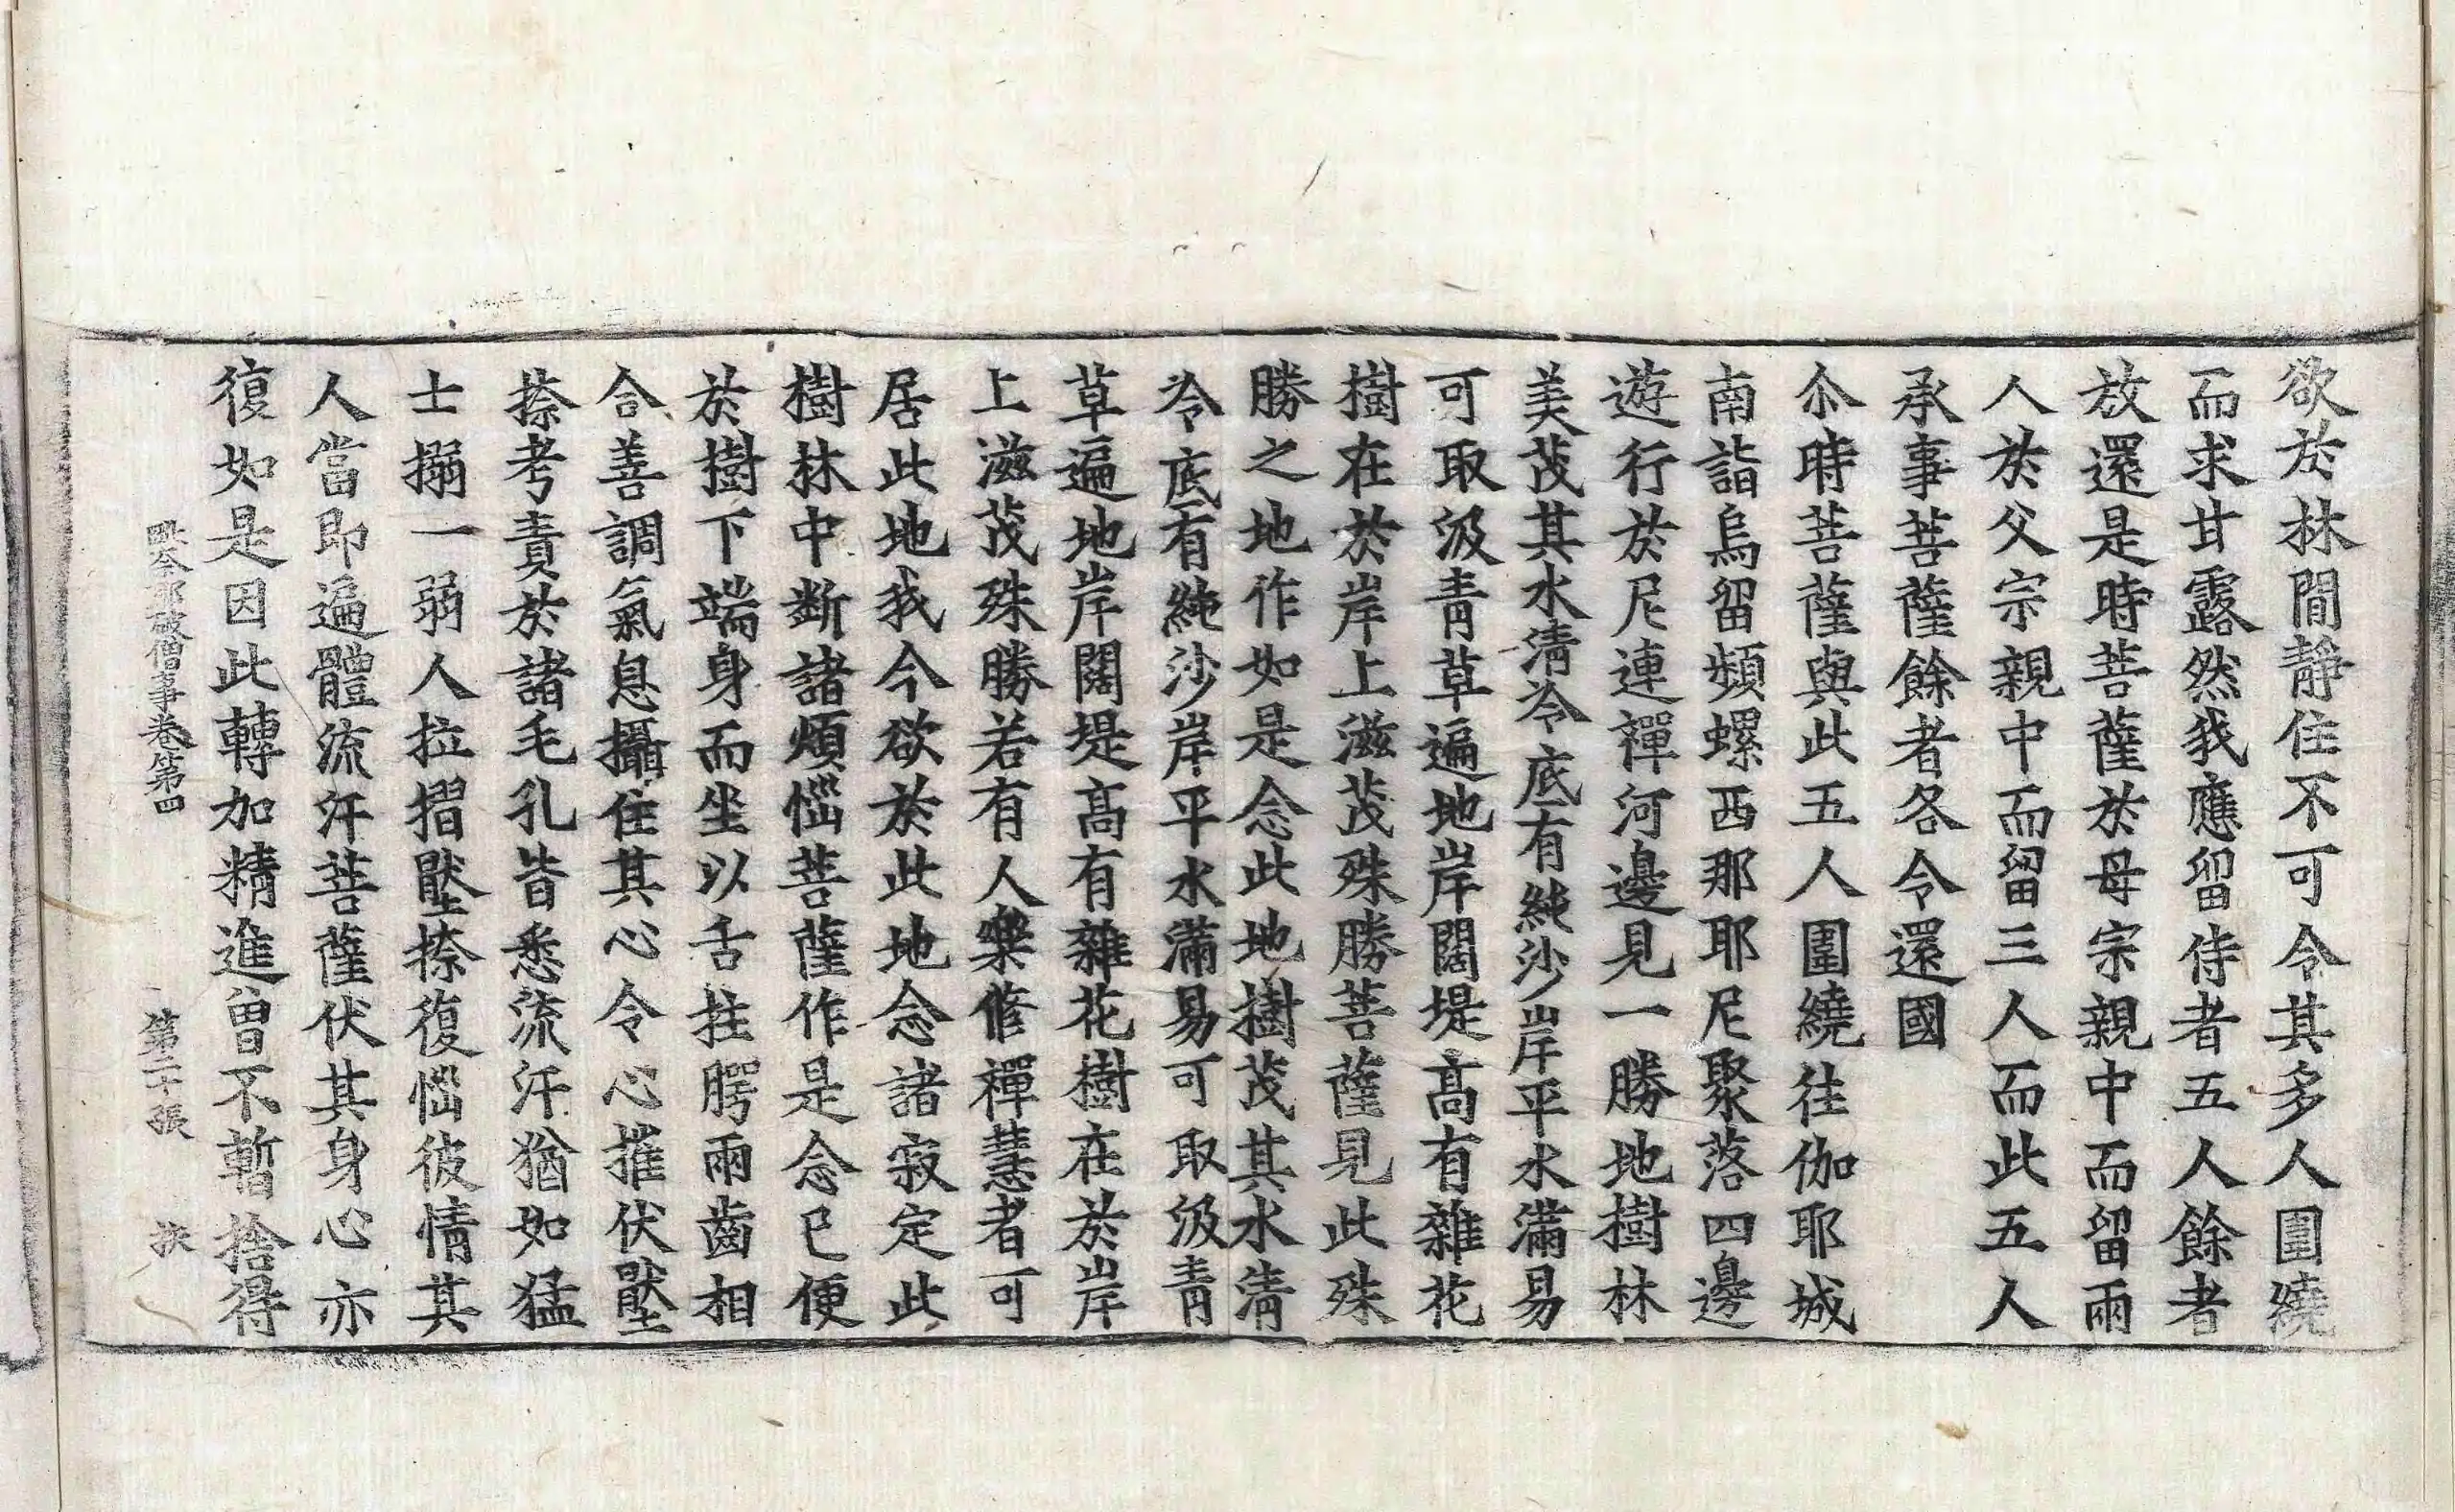 欲於林間靜住不可令其多人圍繞
而求甘露然我應留侍者五人餘者
放還是時菩薩於母宗親中而留兩
人於父宗親中而留三人而此五人
承事菩薩餘者各令還國
尒時菩薩與此五人圍繞往伽耶城
南詣烏留頻螺西那耶尼聚落四邊
遊行於尼連禪河邊見一勝地樹林
美茂其水淸冷底有純沙岸平水滿易
可取汲靑草遍地岸闊堤高有雜花
樹在於岸上滋茂殊勝菩薩見此殊
勝之地作如是念此地樹茂其水淸
冷底有純沙岸平水滿易可取汲靑
草遍地岸闊堤高有雜花樹在於岸
上滋茂殊勝若有人樂修禪慧者可
居此地我今欲於此地念諸寂定此
樹林中斷諸煩惱菩薩作是念已便
於樹下端身而坐以舌拄腭兩齒相
合善調氣息攝住其心令心摧伏壓
捺考責於諸毛孔皆悉流汗猶如猛
士搦一弱人拉摺壓捺復惱彼情其
人當即遍體流汗菩薩伏其身心亦
復如是因此轉加精進曾不暫捨得
毗奈耶破僧事卷第四 第二十張